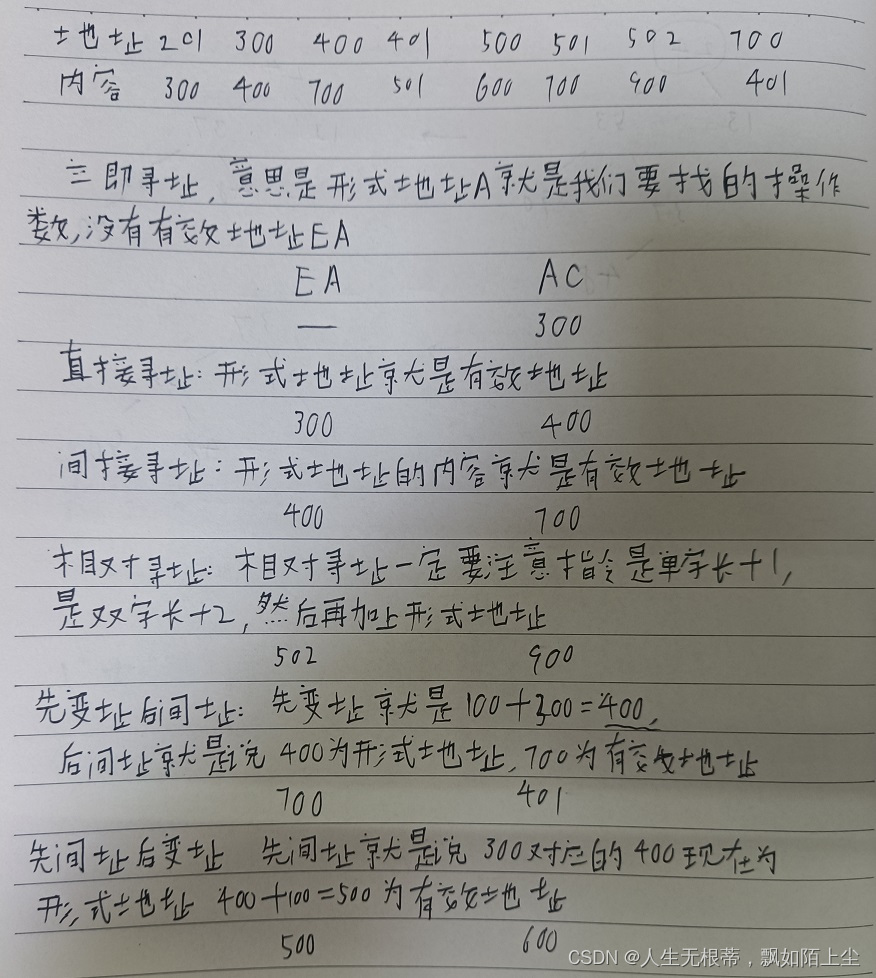 地址 201 300 400 401 500 501 502 700
内容 300 400 700 501 600 700 900 401
立即寻址，意思是形式地址A就是我们要找的操作
数,没有有效地址EA
EA AC
— 300
直接寻址：形式地址就是有效地址
300 400
间接寻址：形式地址的内容就是有效地址
400 700
相对寻址：相对寻址一定要注意指令是单字长+1,
是双字长+2,然后再加上形式地址
502 900
先变址后间址：先变址就是100+300=400,
后间址就是说400为形式地址,700为有效地址
700 401
先间址后变址 先间址就是说300对应的400现在为
形式地址 400+100=500为有效地址
500 600
CSDN @人生无根蒂，飘如陌上尘